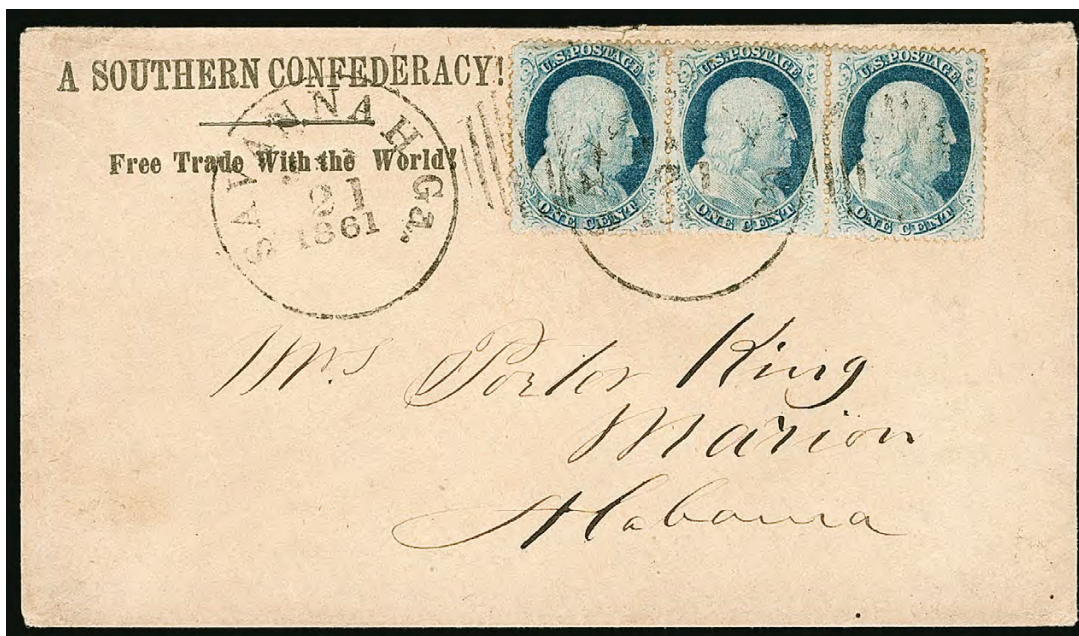 A SOUTHERN CONFEDERACY!
Free Trade With the World!
SAVANNAH Ga.
21
1861
U.S. POSTAGE
ONE CENT
U.S. POSTAGE
ONE CENT
U.S. POSTAGE
ONE CENT
21
Mrs Porter King
Marion
Alabama